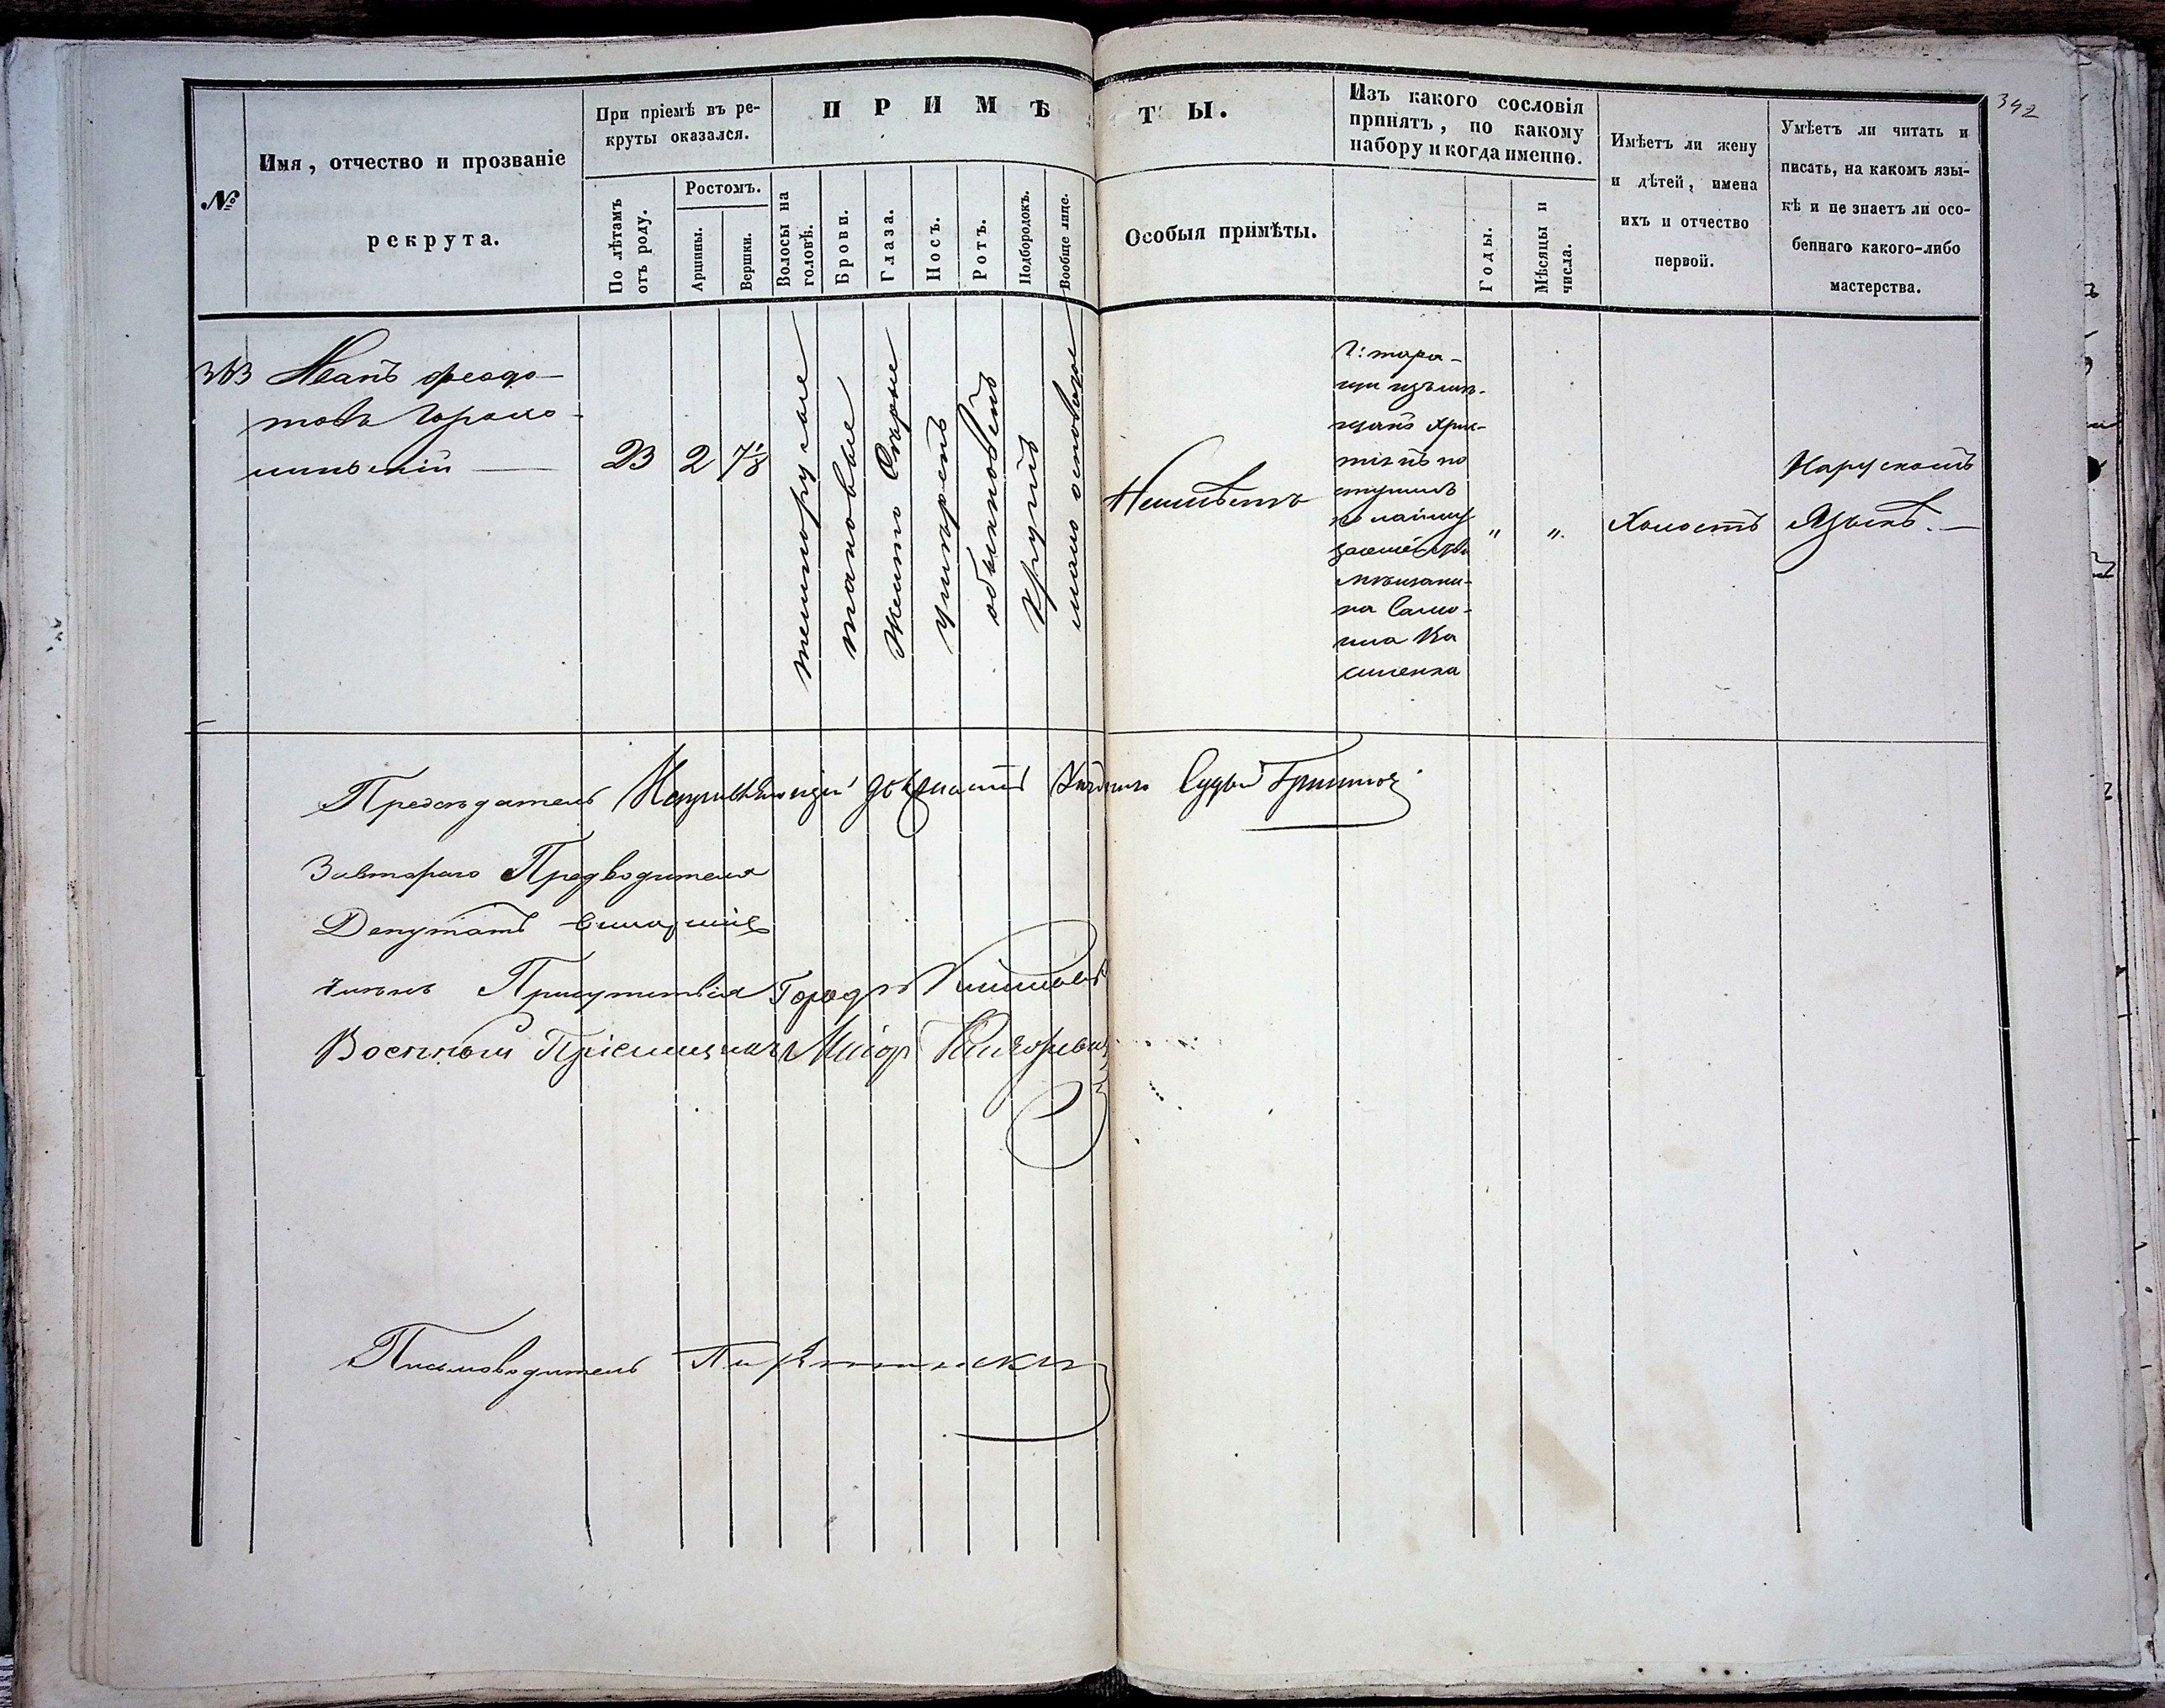 392
№
Имя, отчество и прозваніе
рекрута.
При пріемѣ въ ре-
круты оказался.
По лѣтамъ
отъ роду.
Ростомъ.
Аршины.
Вершки.
ПРИМѢТЫ.
Волосы на
головѣ.
Брови.
Глаза.
Носъ.
Ротъ.
Подбородокъ.
Вообще лице.
Особыя примѣты.
Изъ какого сословія
принятъ, по какому
набору и когда именно.
Годы.
Мѣсяцы и
числа.
Имѣетъ ли жену
и дѣтей, имена
ихъ и отчество
первой.
Умѣетъ ли читать и
писать, на какомъ язы-
кѣ и не знаетъ ли осо-
беннаго какого-либо
мастерства.
363
Иванъ Феодо-
товъ
23
2
7 1/8
темнорусые
таковые
Желто Карые
умѣренъ
обыкновенъ
Круглъ
Неимѣетъ
г: тара-
щи изъ мѣ-
щанъ Хри-
по
ступилъ
по найму
за
мѣщани-
на Само-
ила Ва
силенка
"
".
Холостъ
На рускомъ
Языкѣ. —
Предсѣдатель Исправляющій должность Уѣзднаго Судьи
За втораго Предводителя
Депутатъ
Членъ Присутствія Город
Военный Пріемщикъ Маіоръ
Писмоводитель